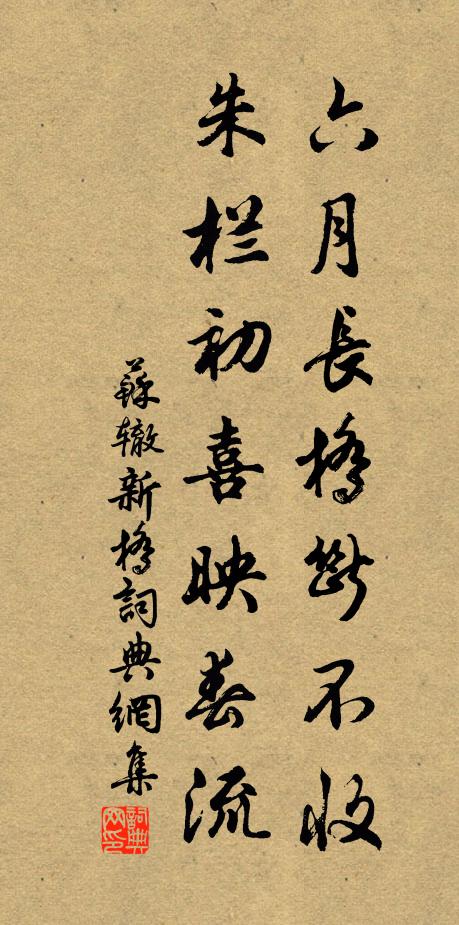 六月長橋斷不收
朱栏初喜映春流
蘇辙新橋詞典網集
詞典网印